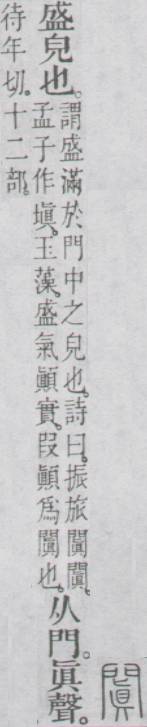 闐
盛皃也。
謂盛滿於門中之皃也。詩曰。振旅闐闐。
孟子作塡。玉藻。盛氣顚實。叚顚為闐也。
从門。眞聲。
待年切。十二部。